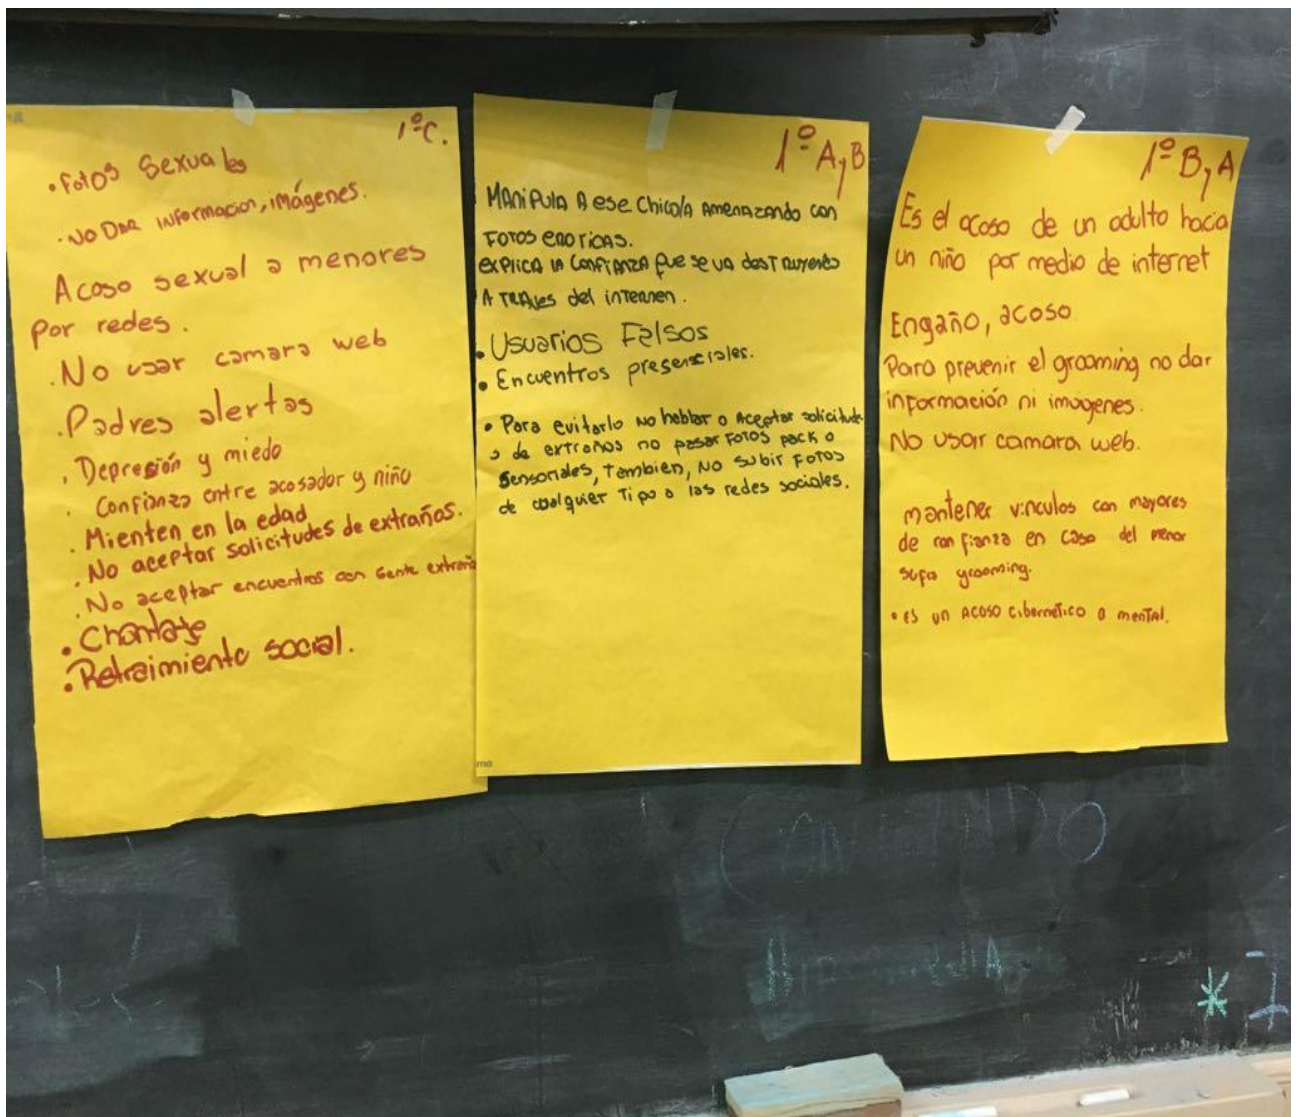 1ºC.
• Fotos Sexuales
. NO Dar informacion, imágenes.
Acoso sexual a menores
por redes.
. No usar camara web
. Padres alertas
. Depresión y miedo
. Confianza entre acosador y niño
. Mienten en la edad
. No aceptar solicitudes de extraños.
. No aceptar encuentros con gente extraña
• Chantaje
• Retraimiento social.
1º A y B
MANiPulA A ese Chico/A AmenAzAndo con
FOTOS eROTICAS.
explicA lA ConfiAnzA que se vA desTRuyendo
A TRAves del inTeRnen.
• Usuarios Falsos
• Encuentros presenciales.
• Para evitarlo no hablar o Aceptar solicitude
s de extraños no pasar FOTOS pack o
Sensoriales, Tambien, No subir FOTOS
de cualquier Tipo a las redes sociales.
ma
1º B y A
Es el acoso de un adulto hacia
un niño por medio de internet
Engaño, acoso.
Para prevenir el grooming no dar
información ni imagenes.
No usar camara web.
mantener vinculos con mayores
de confianza en caso del menor
sufra grooming.
• ES UN ACOSO cibernetico o menTal.